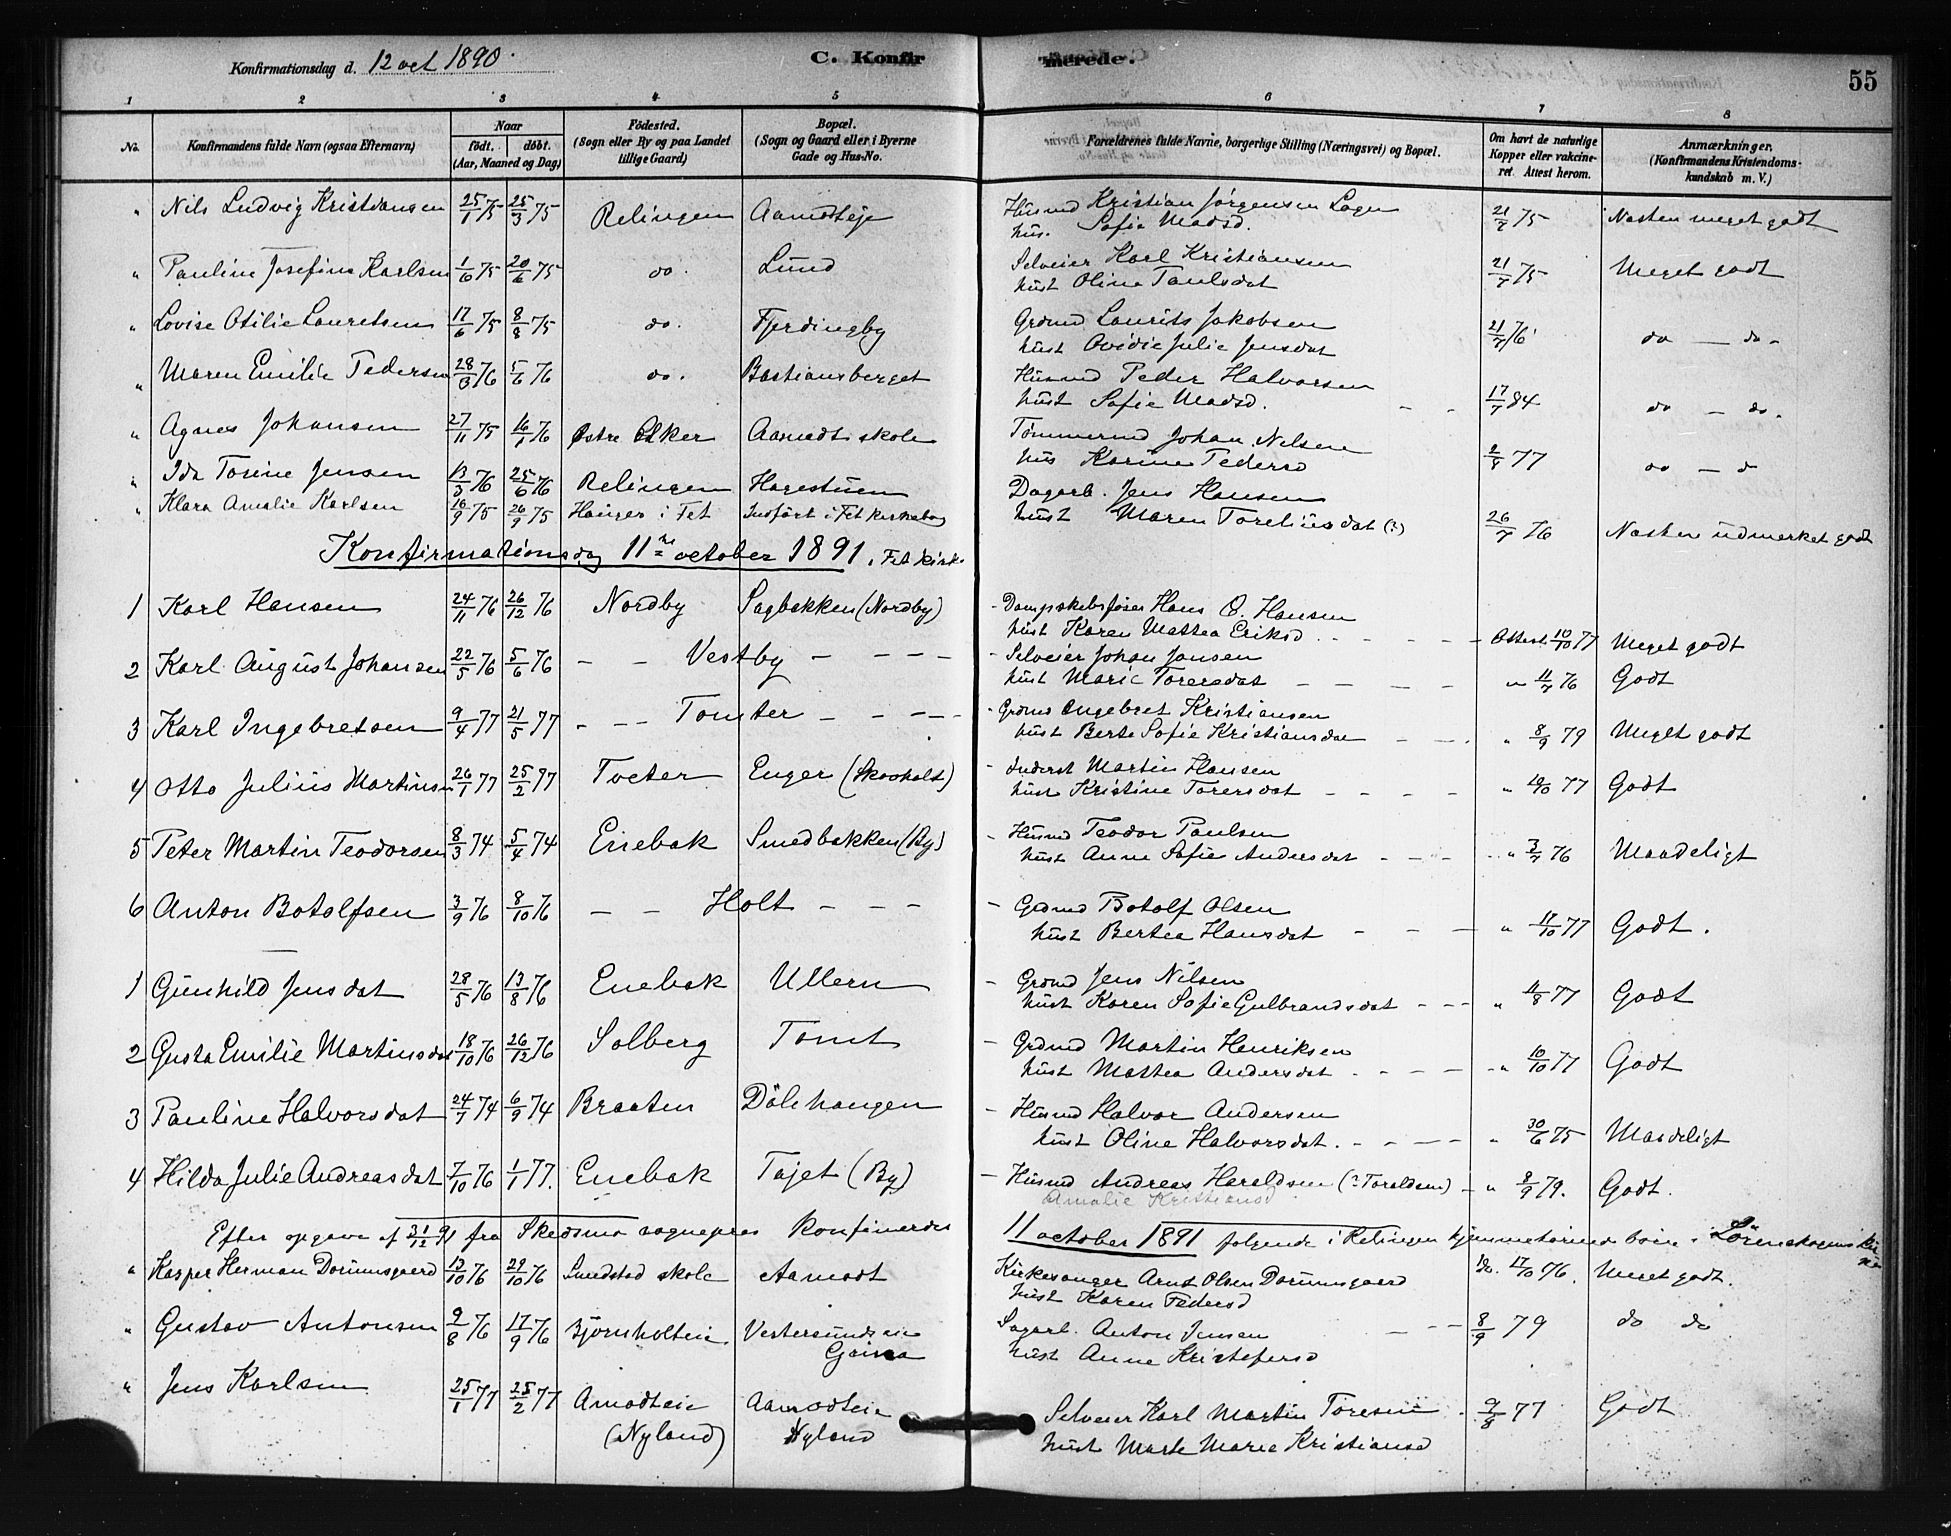 Konfirmationsdag d. 12 oct 1890.
C. Konfirmerede.
55
1 2 3 4 5 6 7 8
No. Konfirmandens fulde Navn (ogsaa Efternavn) Naar født. døbt. (Aar, Maaned og Dag) Fødested. (Sogn eller By og paa Landet tillige Gaard) Bopæl. (Sogn og Gaard eller i Byerne Gade og Hus-No. Forældrenes fulde Navne, borgerlige Stilling (Næringsvei) og Bopæl. Om havt de naturlige Kopper eller vakcineret. Attest herom. Anmærkninger. (Konfirmandens Kristendomskundskab m. V.)
" Nils Ludvig Kristiansen 25/1 75 25/3 75 Relingen Aamodteje Husmd Kristian Jørgensen Lagen 21/7 75 Næsten meget godt
hus. Sofie Madsd.
" Pauline Josefine Karlsen 1/6 75 20/6 75 do. Lund Selveier Karl Kristiansen 21/7 75 Meget godt
hust Oline Paulsdat
" Lovise Otilie Lauretsen 17/6 75 8/8 75 do. Fjerdingby Grdmd Laurits Jakobsen 21/7 76 do — do -
hust Ovidie Julie Jensdat
" Maren Emilie Pedersen 28/3 76 5/6 76 do. Bastiansberget Husmd Peder Halvorsen
hust Sofie Madsd. - - 17/7 84 do — do.
" Agnes Johansen 27/11 75 16/1 76 Østre Aker Aamodt skole Tømmermd Johan Nilsen
hus Karine Pedersd 2/8 77 do — d
" Ida Torine Jensen 13/3 76 25/6 76 Relingen Hagestuen Dagarb. Jens Hansen
" Klara Amalie Karlsen 16/9 75 26/9 75 Hauger i Fet Indført i Fet Kirkebog hust Maren Toreliusdat (?) 26/7 76 Næsten udmerket godt
Konfirmationsdag 11te october 1891. Fet kirke
1 Karl Hansen 24/11 76 26/12 76 Nordby Sagbakken (Nordby) - Dampskibsfører Hans O. Hansen
hust Karen Mathea Eriksd. - - - Attest 10/10 77 Meget godt
2 Karl August Johansen 22/5 76 5/6 76 - - Vestby - - - - - Selveier Johan Jansen
hust Marie Torersdat - - - - " 11/7 76 Godt
3 Karl Ingebretsen 9/4 77 21/5 77 - - - Tomter - - - - - Grdmd Ingebret Kristiansen
hust Berte Sofie Kristiansdat - - " 8/9 79 Meget godt
4 Otto Julius Martinsen 26/1 77 25/2 77 Tveter Enger (Skovholt) - Inderst Martin Hansen
hust Kristine Torersdat - - - - " 10/10 77 Godt
5 Peter Martin Teodorsen 8/3 74 5/4 74 Enebak Smedbakken (By) - Husmd Teodor Paulsen
hust Anne Sofie Andersdat - - - " 3/7 76 Maadeligt
6 Anton Botolfsen 3/9 76 8/10 76 - - Holt - - - - Grdmd Botolf Olsen
hust Bertea Hansdat - - - " 17/10 77 Godt.
1 Gunhild Jensdat 28/5 76 13/8 76 Enebak Ullern - Grdmd Jens Nilsen
hust Karen Sofie Gulbrandsdat - - - " 11/8 77 Godt
2 Gusta Emilie Martinsdat 18/10 76 26/12 76 Solberg Tomt - Grdmd Martin Henriksen
hust Mathea Andersdat - - - - " 10/10 77 Godt
3 Pauline Halvorsdat 24/7 74 6/9 74 Braaten Dölehaugen - Husmd Halvor Andersen
hust Oline Halvorsdat. - - - - " 30/6 75 Maadeligt
4 Hilda Julie Andreasdat 7/10 76 1/1 77. Enebak Tajet (By) - Husmd Andreas Hareldsen (? Toraldsen) - " 8/9 79. Godt.
Amalie Kristiansd
Efter opgave af 31/12 91 fra Skedsmo sognepres konfirmerdes 11 october 1891 følgende i Relingen hjemmehørende børn i Lörenskogens kirke
" Kasper Herman Dorumsgaard 13/10 76 29/10 76 Smestad skole Aamodt Kirkesanger Arnt Olsen Dorumsgaard do. 17/10 76. Meget godt.
hust Karen Pedersd
" Gustav Antonsen 9/8 76 17/9 76 Bjørnholteie Vestersundseie Sagarb. Anton Jensen - - - 8/9 79 do do
hust Anne Kristofersd
" Jens Karlsen 25/1 77 25/2 77 Amodteie Aamodteie Selveier Karl Martin Toresen - 9/8 77 Godt
(Nyland) Nyland hust Marte Marie Kristiansd